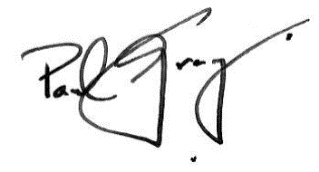 Paul Gray